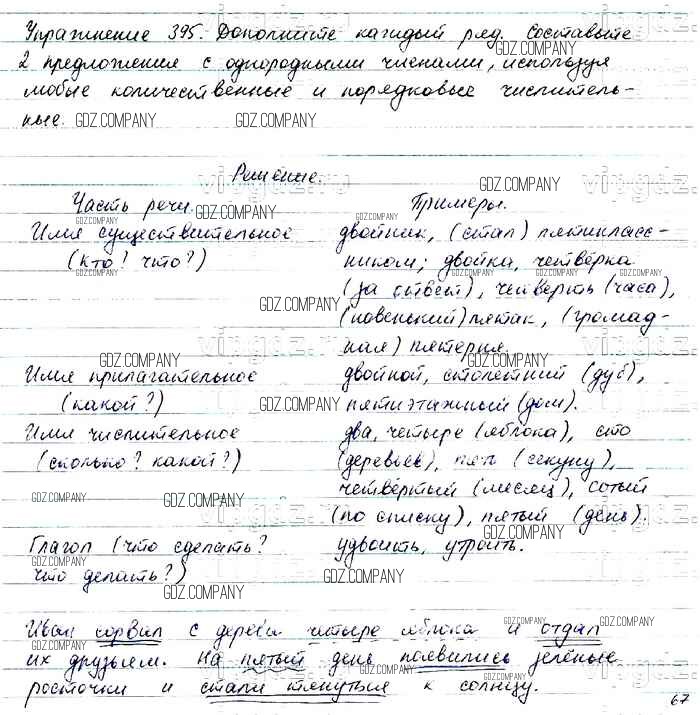 Упражнение 395. Дополните каждый ряд. Составьте
2 предложения с однородными членами, используя
любые количественные и порядковые числитель-
ные.
Решение.
Часть речи. Примеры.
Имя существительное двойник, (стал) пятикласс-
(кто? что?) ником; двойка, четвёрка
(за ответ), четверть (часа),
(новенький) пятак, (громад-
ная) пятерня.
Имя прилагательное двойной, столетний (дуб),
(какой?) пятиэтажный (дом).
Имя числительное два, четыре (яблока), сто
(сколько? какой?) (деревьев), пять (секунд),
четвёртый (месяц), сотый
(по списку), пятый (день).
Глагол (что сделать? удвоить, утроить.
что делать?)
Иван сорвал с дерева четыре яблока и отдал
их друзьям. На пятый день появились зелёные
росточки и стали тянуться к солнцу.
67